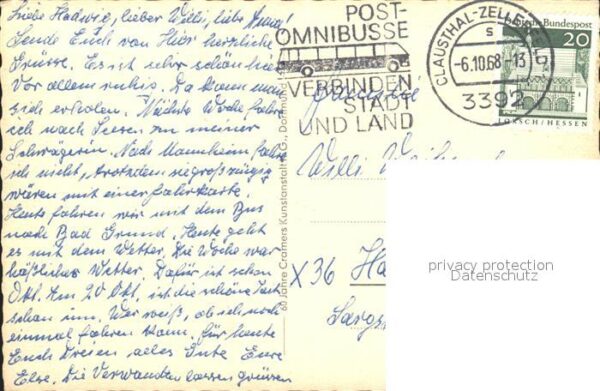 Liebe Hedwig, lieber Willi, liebe
Sende Euch von Hier herzliche
Grüsse. Es ist sehr schön hie
Vor allem ruhig. Da kann man
sich erholen. Nächste Woche fahre
ich nach Seesen zu meiner
Schwägerin. Nach Mannheim fahre
ich nicht, trotzdem sie großzügig
wären mit einer Fahrkarte.
Heute fahren wir mit dem Bus
nach Bad Grund. Heute geht
es mit dem Wetter. Die Woche war
häßliches Wetter. Dafür ist schon
Okt. Am 20 Okt. ist die schöne Zeit
schon um. Wer weiß, ob ich noch
einmal fahren kann. Für heute
Euch Dreien alles Gute Eure
Else. Die Verwandten lassen grüssen
60 Jahre Cramers Kunstanstalt K.G., Dortmund
POST-
OMNIBUSSE
VERBINDEN
STADT
UND LAND
CLAUSTHAL-ZELLERFELD
s
-6.10.68-13
3392
Deutsche Bundespost
20
LORSCH/HESSEN
Willi
X 36 Ha
privacy protection
Datenschutz